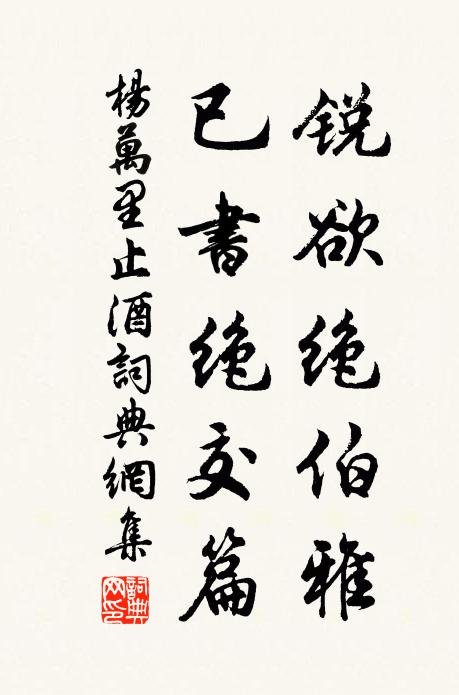 锐欲绝伯雅
已書绝交篇
楊萬里止酒詞典網集
詞典网印